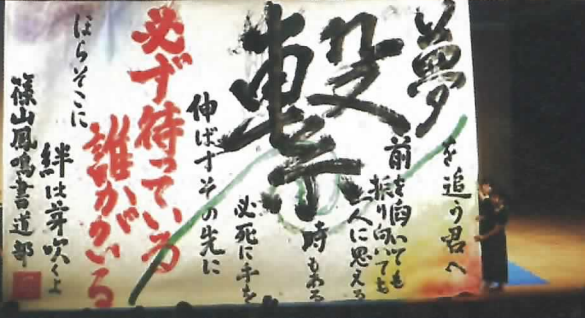 夢を追う君へ
前を向いても
振り向いても
一人に思える
時もある
繋
必死に手を
伸ばすその先に
必ず待っている
誰かがいる
ほらそこに
絆は芽吹くよ
篠山鳳鳴書道部